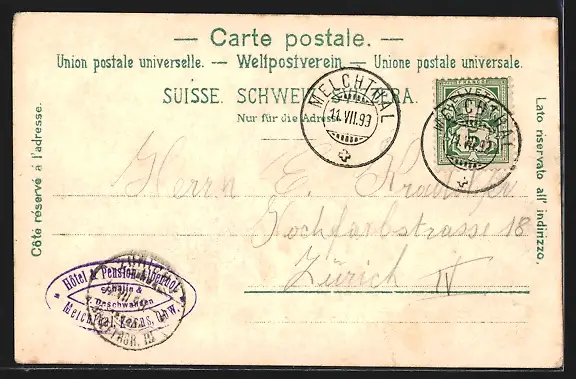 — Carte postale. —
Union postale universelle. — Weltpostverein — Unione postale universale.
SUISSE. SCHWEIZ. SVIZZERA.
Nur für die Adresse.
Côte réservé à l'adresse.
Lato riservato all' indirizzo.
MELCHTHAL
11.VII.99
MELCHTHAL
Herrn E.
Hochfarbstrasse 18
Zürich IV
Hôtel & Pension Alpenhof
Schälin &
Deschwanden
Melchthal, Kerns, Obw.